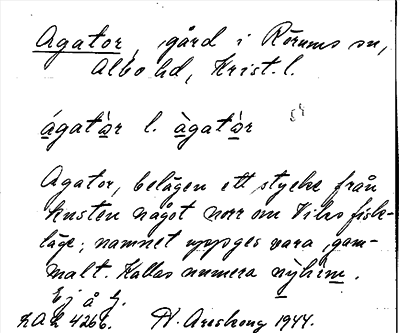 Agator, gård i Rörums sn,
Albo hd, Krist. l.
ágatàr l. àgatàr
Agator, belägen ett stycke från
kusten något norr om Viks fisk-
läge; namnet uppges vara gam-
malt. Kallas numera nýhem.
Ej å
LAL 4266. H. Areskoug 1944.